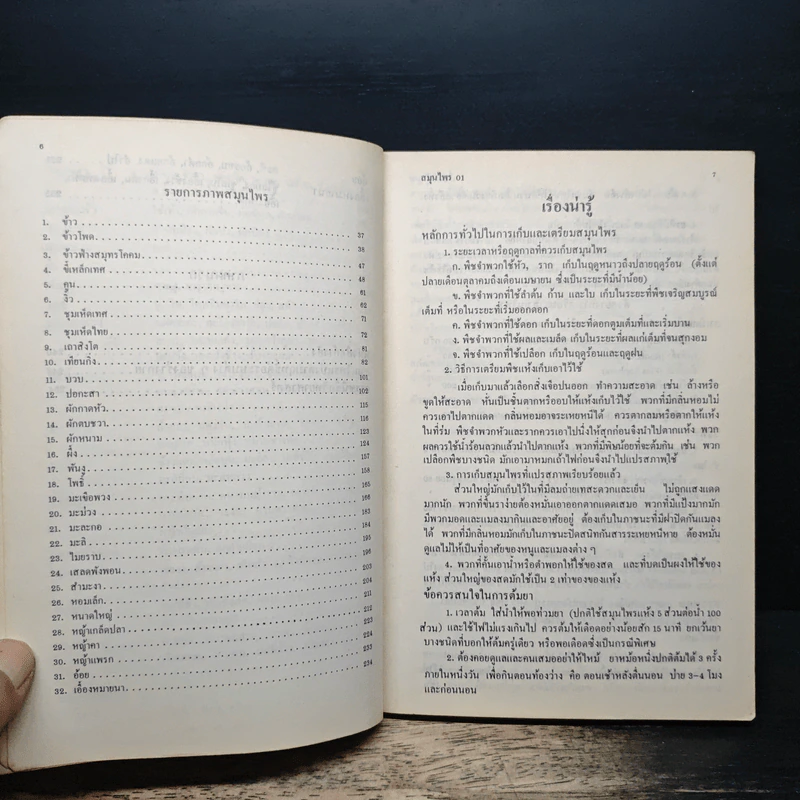 6
รายการภาพสมุนไพร
1. ข้าว 37
2. ข้าวโพด 38
3. ข้าวฟ่างสมุทรโคดม 47
4. ขี้เหล็กเทศ 48
5. คูน 61
6. งิ้ว 62
7. ชุมเห็ดเทศ 71
8. ชุมเห็ดไทย 72
9. เถาสิงโต 81
10. เทียนกิ่ง 82
11. บวบ 101
12. ปอกะสา 102
13. ผักกาดหัว 115
14. ผักตบชวา 116
15. ผักหนาม 123
16. ผึ้ง 124
17. พันงู 157
18. โพธิ์ 158
19. มะเขือพวง 165
20. มะม่วง 166
21. มะละกอ 183
22. มะลิ 184
23. ไมยราบ 193
24. เสลดพังพอน 194
25. สำมะงา 203
26. หอมเล็ก 204
27. หนาดใหญ่ 211
28. หญ้าเกล็ดปลา 212
29. หญ้าคา
30. หญ้าแพรก
31. อ้อย 233
32. เอื้องหมายนา 234
สมุนไพร 01
7
เรื่องน่ารู้
หลักการทั่วไปในการเก็บและเตรียมสมุนไพร
1. ระยะเวลาหรือฤดูกาลที่ควรเก็บสมุนไพร
ก. พืชจำพวกใช้หัว, ราก เก็บในฤดูหนาวถึงปลายฤดูร้อน (ตั้งแต่
ปลายเดือนตุลาคมถึงเดือนเมษายน ซึ่งเป็นระยะที่มีน้ำน้อย)
ข. พืชจำพวกที่ใช้ลำต้น ก้าน และใบ เก็บในระยะที่พืชเจริญสมบูรณ์
เต็มที่ หรือในระยะที่เริ่มออกดอก
ค. พืชจำพวกที่ใช้ดอก เก็บในระยะที่ดอกตูมเต็มที่และเริ่มบาน
ง. พืชจำพวกที่ใช้ผลและเมล็ด เก็บในระยะที่ผลแก่เต็มที่จนสุกงอม
จ. พืชจำพวกที่ใช้เปลือก เก็บในฤดูร้อนและฤดูฝน
2. วิธีการเตรียมพืชแห้งเก็บเอาไว้ใช้
เมื่อเก็บมาแล้วเลือกสิ่งเจือปนออก ทำความสะอาด เช่น ล้างหรือ
ขูดให้สะอาด หั่นเป็นชิ้นตากหรืออบให้แห้งเก็บไว้ใช้ พวกที่มีกลิ่นหอมไม่
ควรเอาไปตากแดด กลิ่นหอมอาจระเหยหนีได้ ควรตากลมหรือตากให้แห้ง
ในที่ร่ม พืชจำพวกหัวและรากควรเอาไปนึ่งให้สุกก่อนจึงนำไปตากแห้ง พวก
ผลควรใช้น้ำร้อนลวกแล้วนำไปตากแห้ง พวกที่มีพิษน้อยที่จะต้มกิน เช่น พวก
เปลือกพืชบางชนิด มักเอามาหมกแล้วไฟก่อนจึงนำไปแปรสภาพใช้
3. การเก็บสมุนไพรที่แปรสภาพเรียบร้อยแล้ว
ส่วนใหญ่มักเก็บไว้ในที่มีลมถ่ายเทสะดวกและเย็น ไม่ถูกแสงแดด
มากนัก พวกที่ชื้นราง่ายต้องหมั่นเอาออกตากแดดเสมอ พวกที่มีแป้งมากมัก
มีพวกมอดและแมลงมากินและอาศัยอยู่ ต้องเก็บในภาชนะที่มีฝาปิดกันแมลง
ได้ พวกที่มีกลิ่นหอมมักเก็บในภาชนะปิดสนิทกันสารระเหยหนีหาย ต้องหมั่น
ดูแลไม่ให้เป็นที่อาศัยของหนูและแมลงต่าง ๆ
4. พวกที่คั้นเอาน้ำหรือตำพอกให้ใช้ของสด และที่บดเป็นผงให้ใช้ของ
แห้ง ส่วนใหญ่ของสดมักใช้เป็น 2 เท่าของของแห้ง
ข้อควรสนใจในการต้มยา
1. เวลาต้ม ใส่น้ำให้พอท่วมยา (ปกติใช้สมุนไพรแห้ง 5 ส่วนต่อน้ำ 100
ส่วน) และใช้ไฟไม่แรงเกินไป ควรต้มให้เดือดอย่างน้อยสัก 15 นาที ยกเว้นยา
บางชนิดที่บอกให้ต้มครู่เดียว หรือพอเดือดซึ่งเป็นกรณีพิเศษ
2. ต้องคอยดูแลและคนเสมออย่าให้ไหม้ ยาหม้อหนึ่งปกติต้มได้ 3 ครั้ง
ภายในหนึ่งวัน เพื่อกินตอนท้องว่าง คือ ตอนเช้าหลังตื่นนอน บ่าย 3-4 โมง
และก่อนนอน